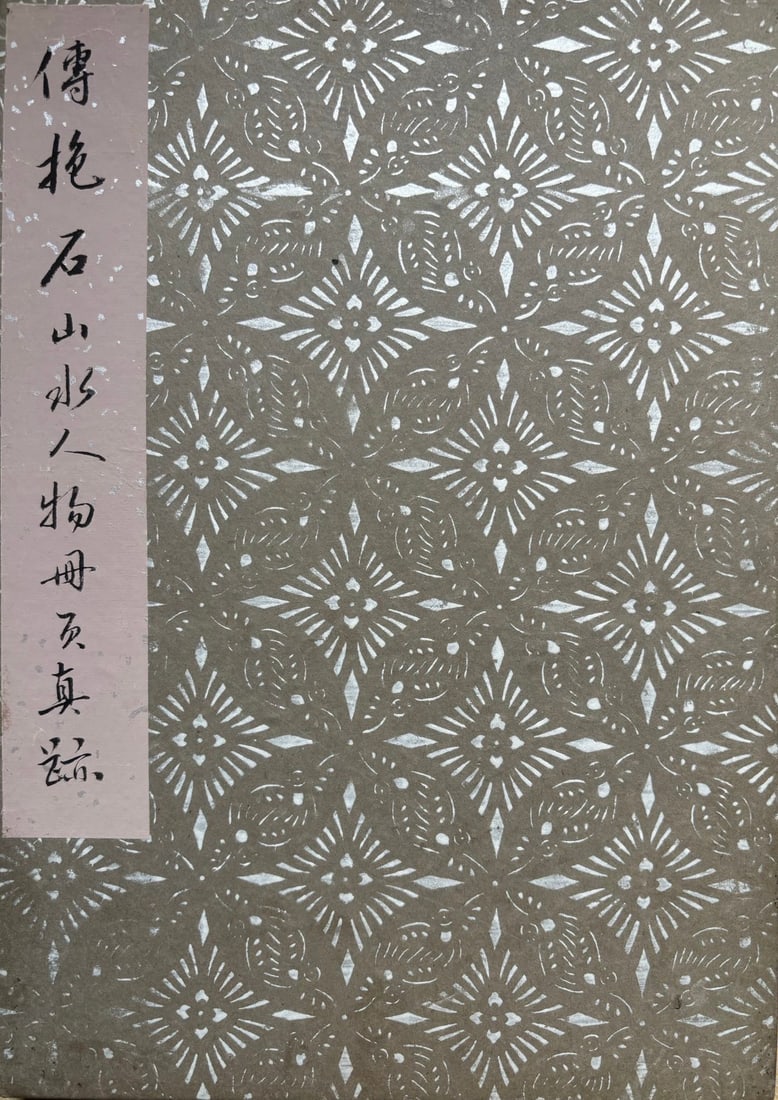 傅抱石山水人物冊页真跡